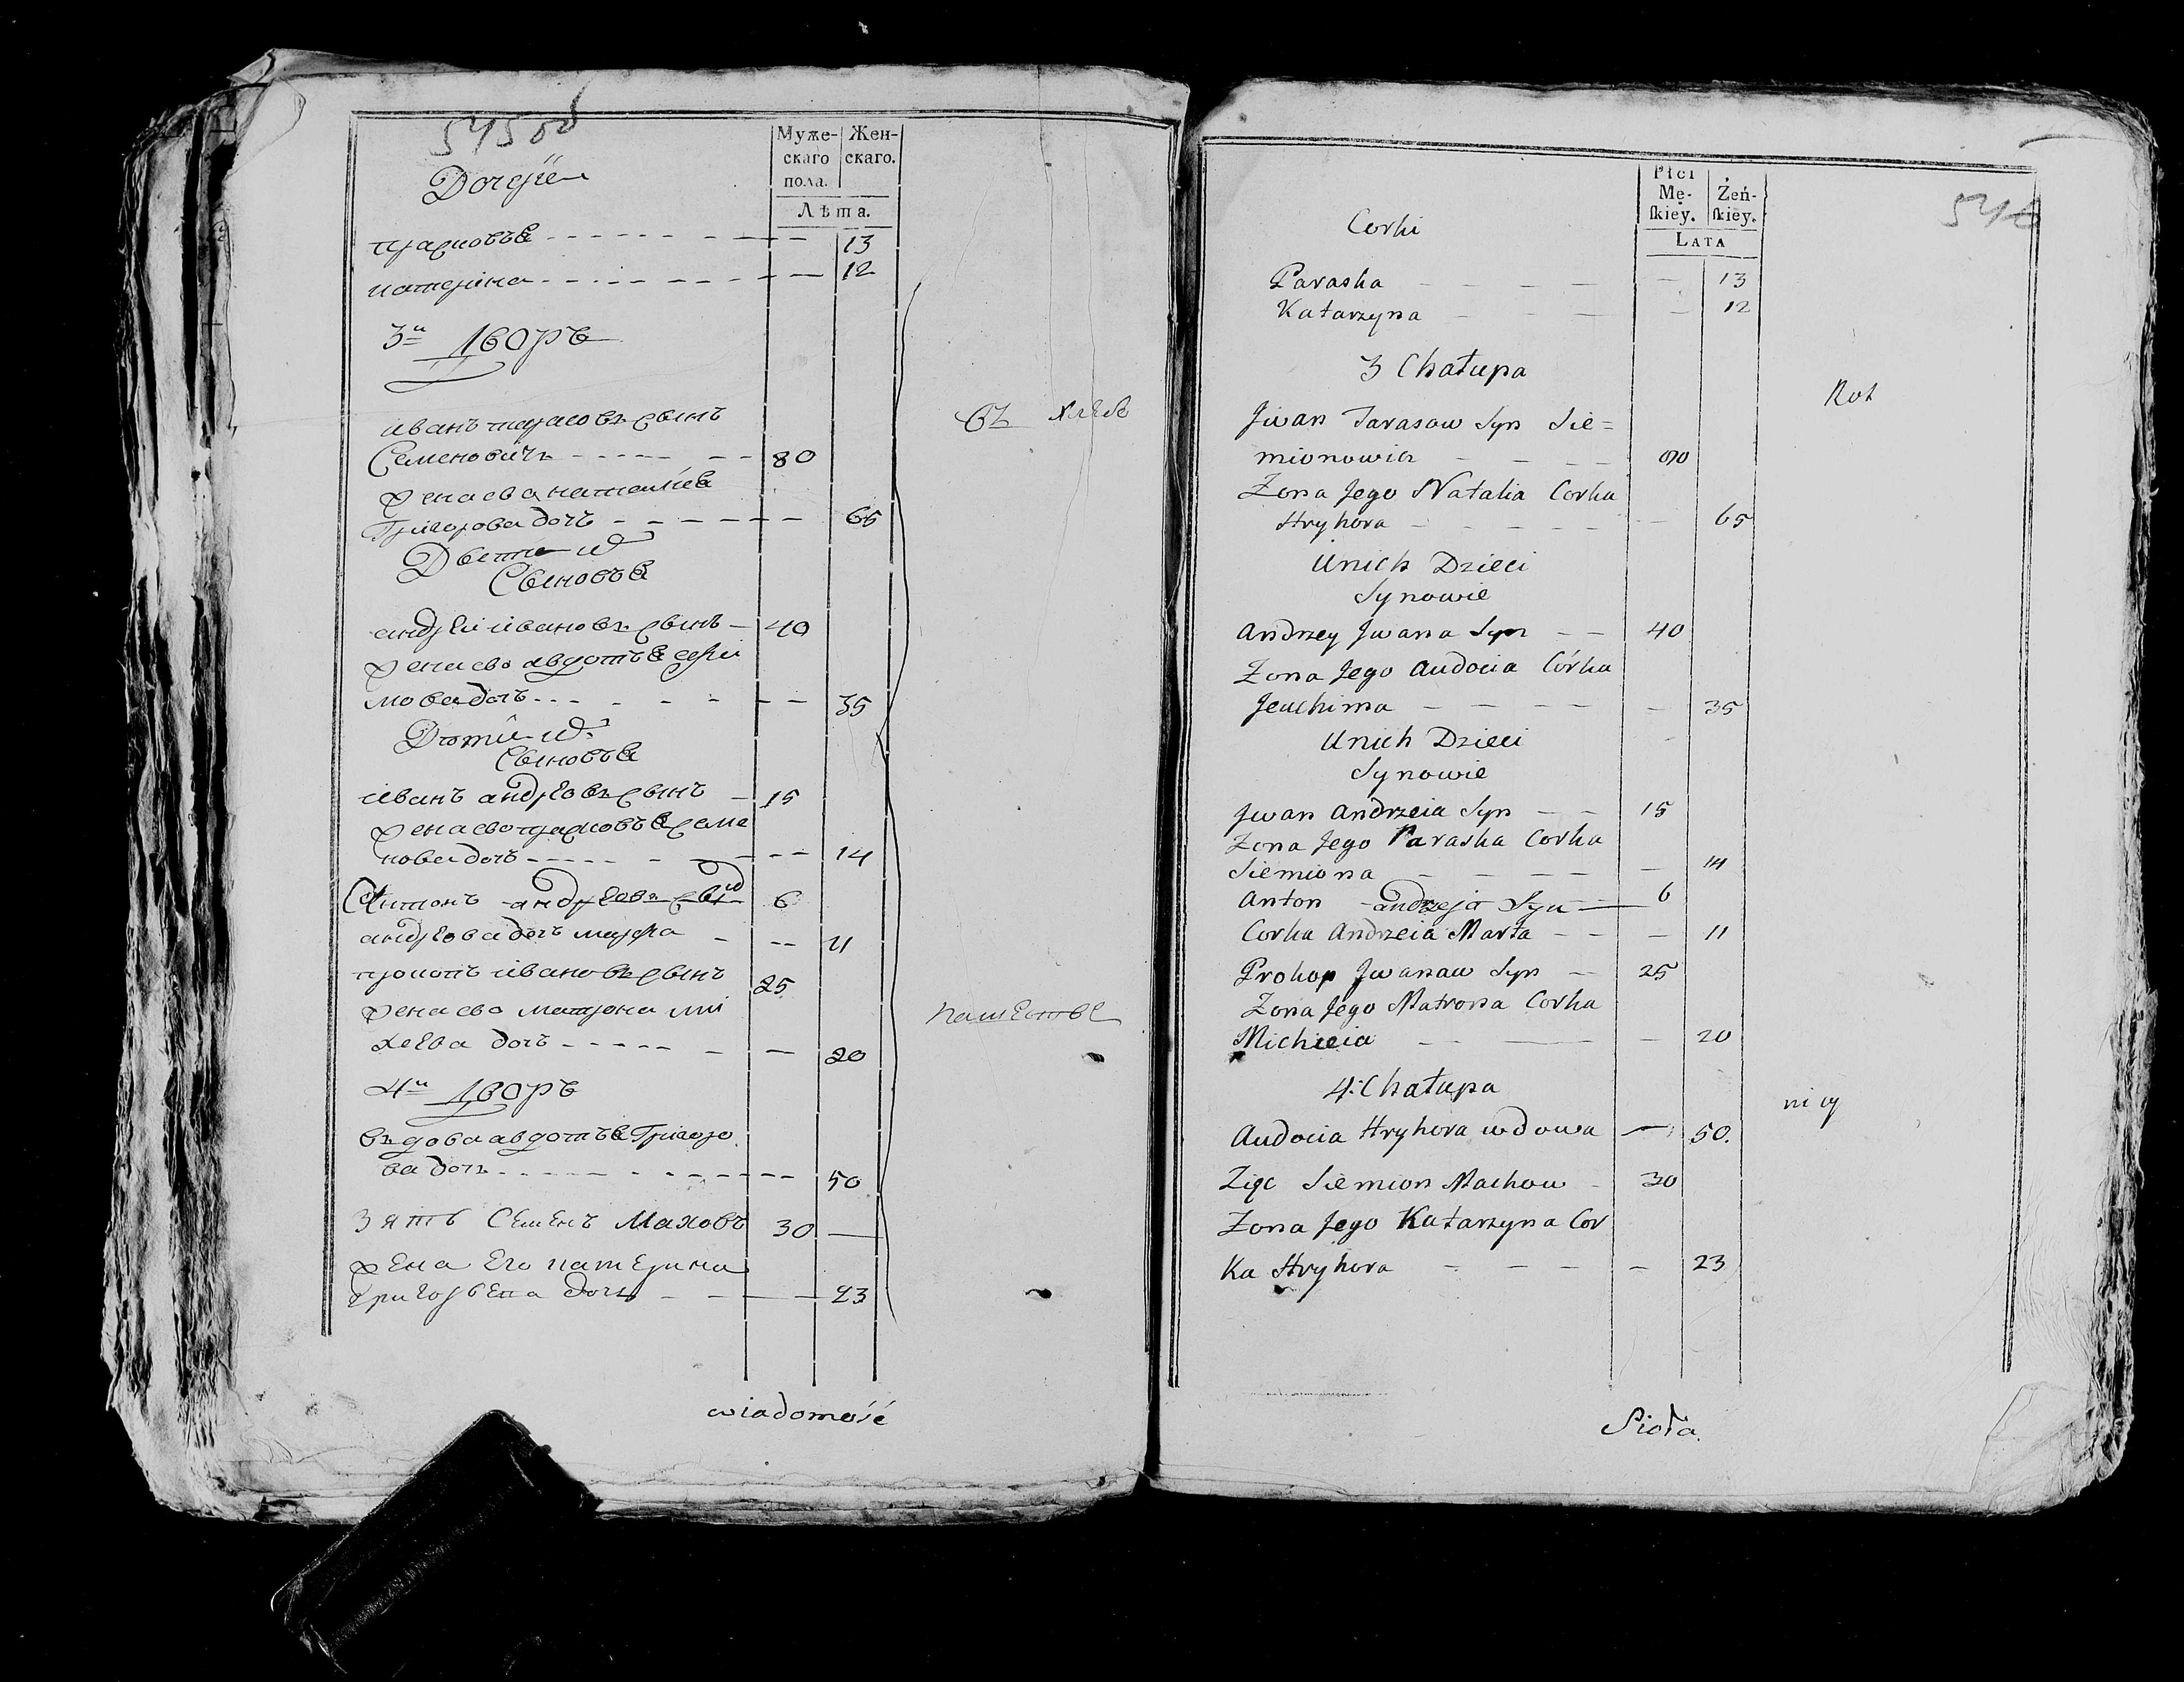 Муже-
скаго
пола.
Жен-
скаго.
Лѣта.
Дочери
прасковья 13
катерина 12
3й Дворъ
иванъ тарасовъ сынъ
Семеновичъ 80
жена ево наталия
Григорова дочь 65
Дети их
Сыновья
андрей ивановъ сынъ 40
жена ево авдотья
мова дочь 35
Дети их
Сыновья
иванъ андреовъ сынъ 15
жена ево прасковья семе
нова дочь 14
Антонъ андреевъ сынъ 6
андреова дочь марфа 11
прокопъ ивановъ сынъ 25
жена ево матрена ми
хеева дочь 20
4й Дворъ
вдова авдотья Григоро
ва дочь 50
Зять Семенъ Маховъ 30
жена Его катерина
григорьева дочь 23
wiadomość
Płci
Mę-
skiéy.
Żeń-
skiéy.
LATA
Corki
Paraska 13
Katarzyna 12
3 Chałupa
Jwan Tarasow Syn Sie=
mionowicz
Zona Jego Natalia Corka
Hryhora 65
Unich Dzieci
Synowie
Andrzey Jwana Syn 40
Zona Jego Audocia Córka
Jeachima 35
Unich Dzieci
Synowie
Jwan Andrzeia Syn 15
Zona Jego Paraska Corka
Siemiona 14
Anton andrzeja Syn 6
Corka Andrzeia Marta 11
Prokop Jwanaw Syn 25
Zona Jego Matrona Corka
Micheia 20
4. Chałupa
Audocia Hryhora wdowa 50.
Zięc Siemion Machow 30
Zona Jego Katarzyna Cor
Ka Hryhora 23
Sioła.